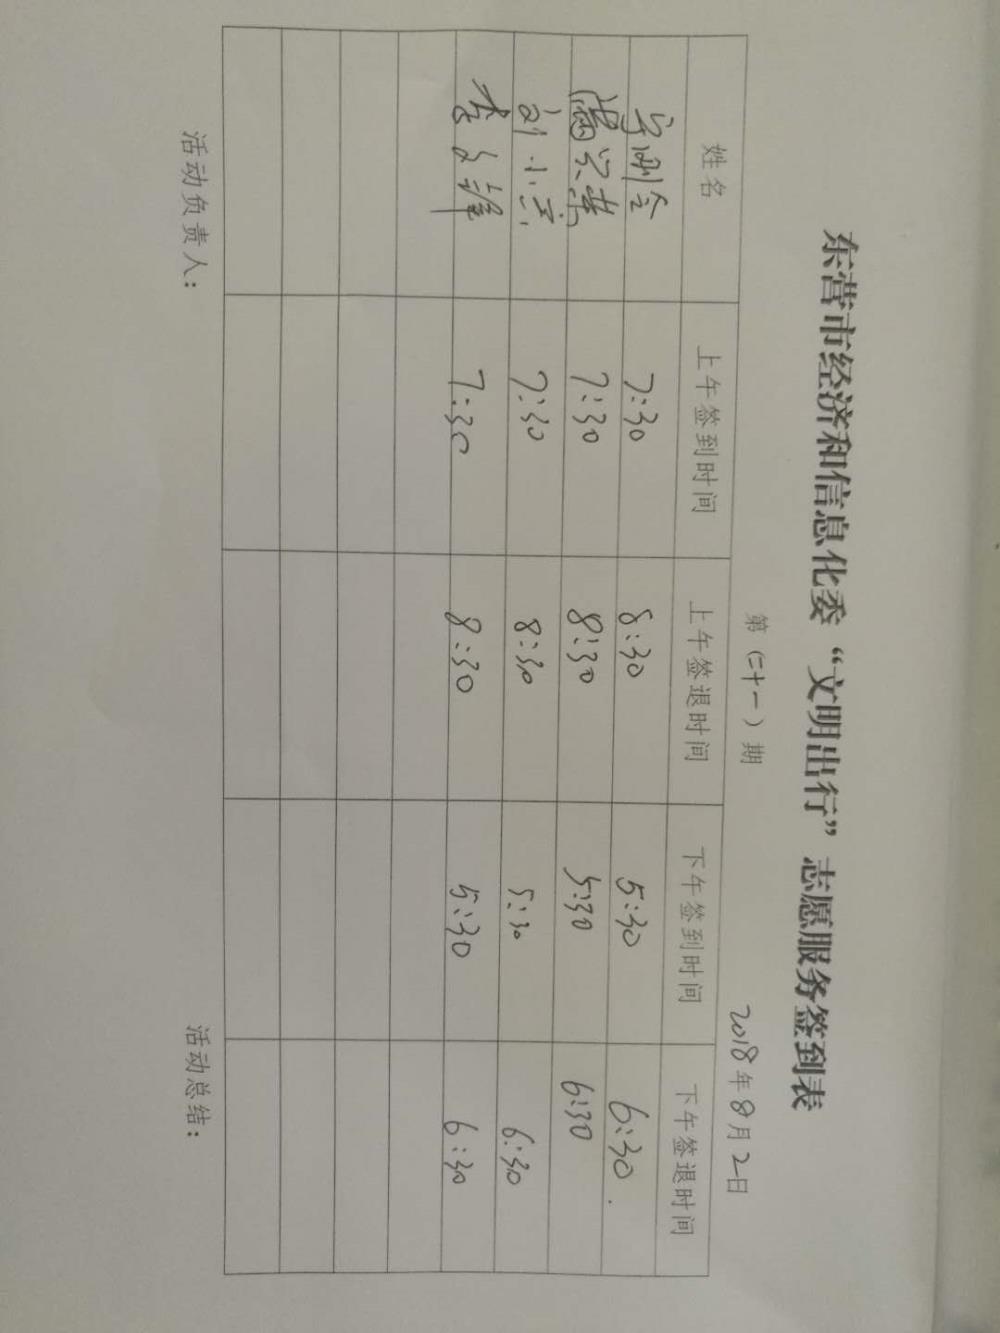 东营市经济和信息化委“文明出行”志愿服务签到表
第（二十一）期 2018年8月2日
姓名 上午签到时间 上午签退时间 下午签到时间 下午签退时间
7:30 8:30 5:30 6:30
7:30 8:30 5:30 6:30
刘小 7:30 8:30 5:30 6:30
李 7:30 8:30 5:30 6:30
活动负责人： 活动总结：